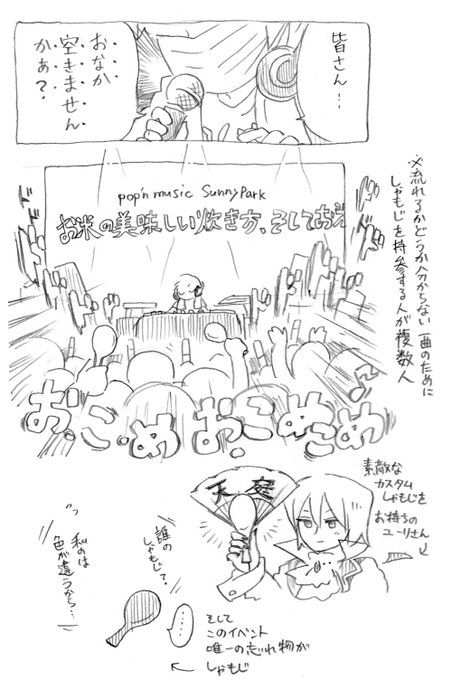 皆さん…
おなか
空きません
かぁ？
pop'n music Sunny Park
お米の美味しい炊き方、そしておえ
※流れるかどうか分からない一曲のために
しゃもじを持参する人が複数人
おこめおこめこめ
素敵な
カスタム
しゃもじを
お持ちの
ユーリさん
天庭
誰の
しゃもじ？
私のは
色が違うから…
……
そして
このイベント
唯一の忘れ物が
しゃもじ